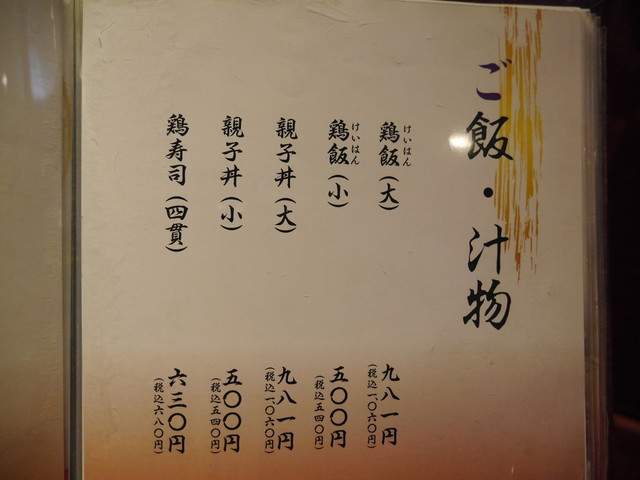 ご飯・汁物
けいはん
鶏飯(大)
九八一円
(税込一、〇六〇円)
けいはん
鶏飯(小)
五〇〇円
(税込五四〇円)
親子丼(大)
九八一円
(税込一、〇六〇円)
親子丼(小)
五〇〇円
(税込五四〇円)
鶏寿司(四貫)
六三〇円
(税込六八〇円)